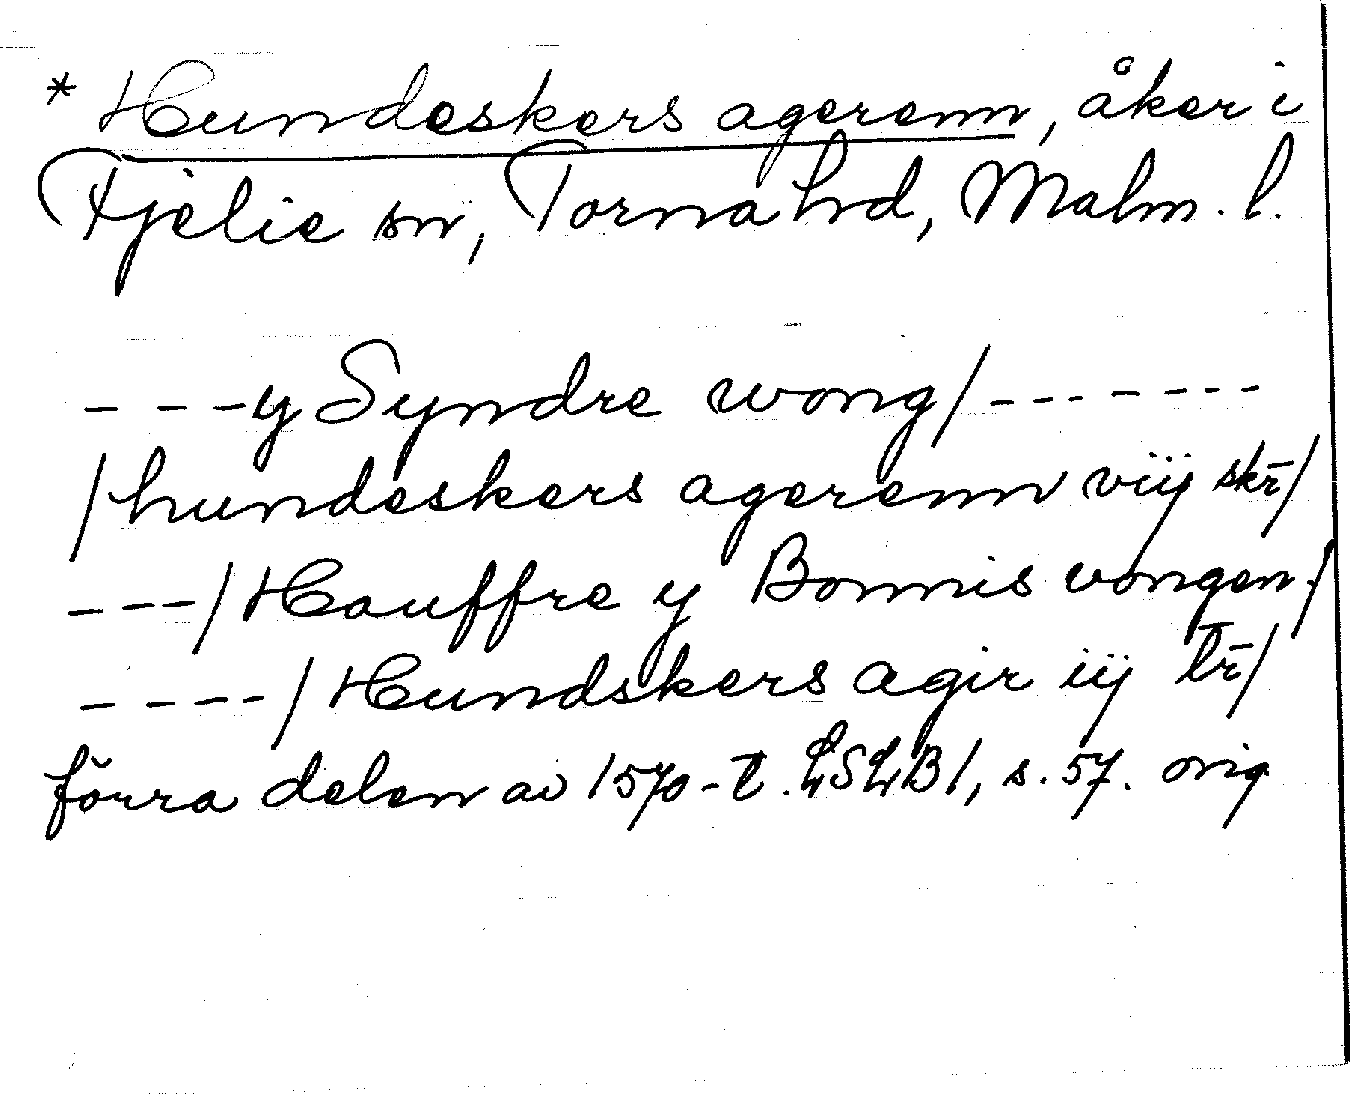 * Hundeskers agerenn, åker i
Fjelie sn, Torna hd, Malm. l.
- - - y Syndre wong/ - - - - - - -
/hundeskers agerenn viij skr̄/
- - - /Hauffre y Bonnis vongen./
- - - - /Hundskers agir iij t̄r̄/
förra delen av 1570-t. LSLB1, s. 57. orig